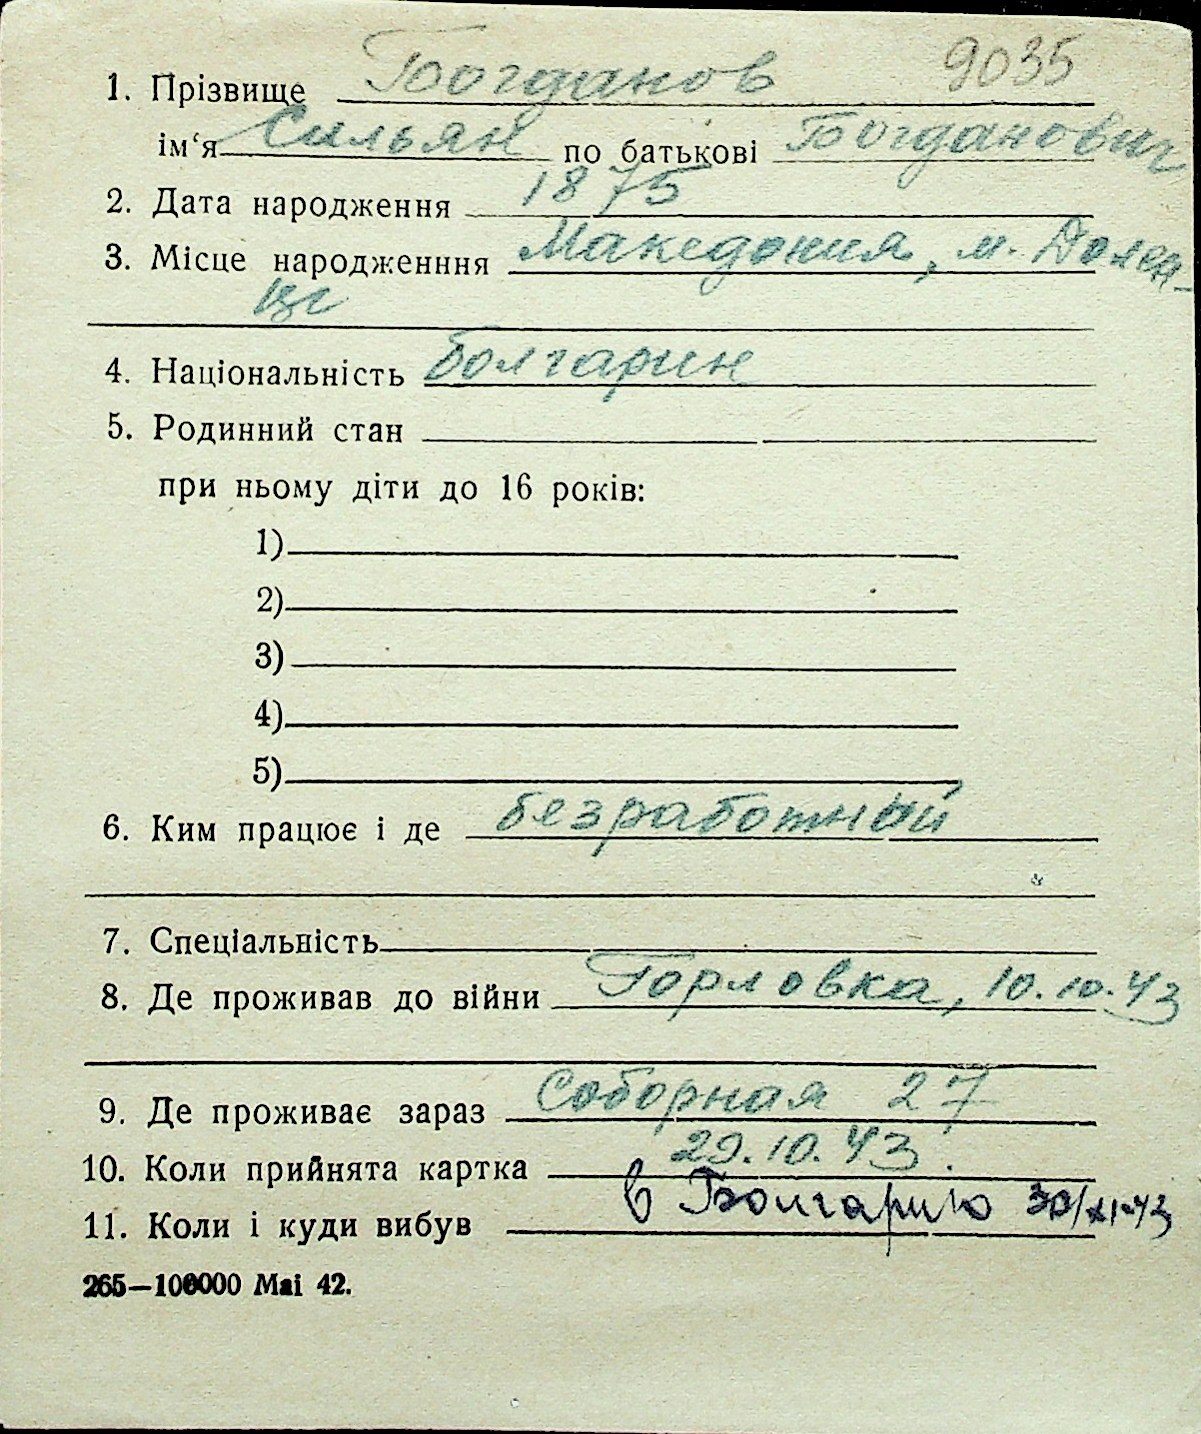 1. Прізвище Богданов 9035
ім‘я Сильян по батькові Богданович
2. Дата народження 1875
3. Місце народженння Македония, м. Долен-
ци
4. Національність болгарин
5. Родинний стан
при ньому діти до 16 років:
1)
2)
3)
4)
5)
6. Ким працює і де безработный
7. Спеціальність
8. Де проживав до війни Горловка, 10.10.43
9. Де проживає зараз Соборная 27
10. Коли прийнята картка 29.10.43.
11. Коли і куди вибув в Болгарию 30/XI-43
265—100000 Mai 42.